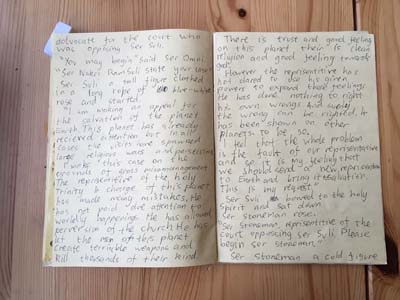 advocate for the court who
was opposing Ser Suli.
"You may begin" said Ser Omni.
"Ser Nakel Ram Suli state your case"
Ser Suli a tall figure clothed
in a long robe of blue-white
rose and started.
"I am making an appeal for
the salvation of the planet
Earth. This planet has already
recieved attention but in all
cases the victors spawned
large religion wars and persecutions
I make this case on the
grounds of gross mismanagement
The representitive of the holy
Trinity in charge of this planet
has made many mistakes. He
has not paid due attention to
worldly happenings. He has allowed
perversion of the church. He has
let the men of this planet
create terrible weapons and
kill thousands of their kind.
There is trust and good feeling
on this planet, their is clean
religion and good feeling towards
god."
However the representive has
not dared to use his given
powers to expand those feelings.
He has done nothing to right
his own wrongs. And surely
the wrong can be righted, it
has been shown on other
Planets to be so.
"I feel that the whole problem
is the fault of our representive
and so it is my feeling that
we should send a new representive
to Earth and bring it salvation.
This is my request"
Ser Suli bowed to the holy
spirit and sat down
Ser Stoneman rose.
"Ser Stoneman, representitive of the
court opposing Ser Suli. Please
begin Ser Stoneman."
Ser Stoneman a cold figure